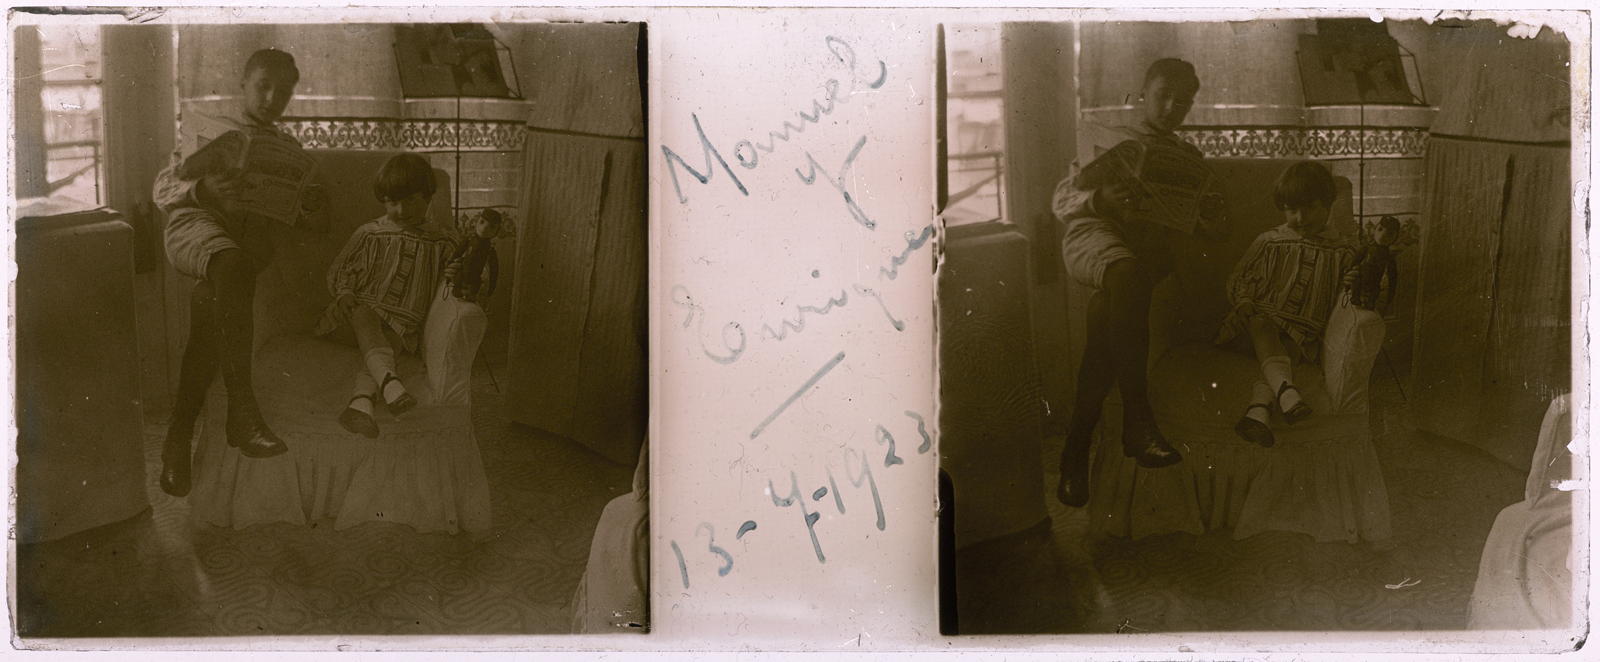 Manuel
y
Enrique
13-7-1923